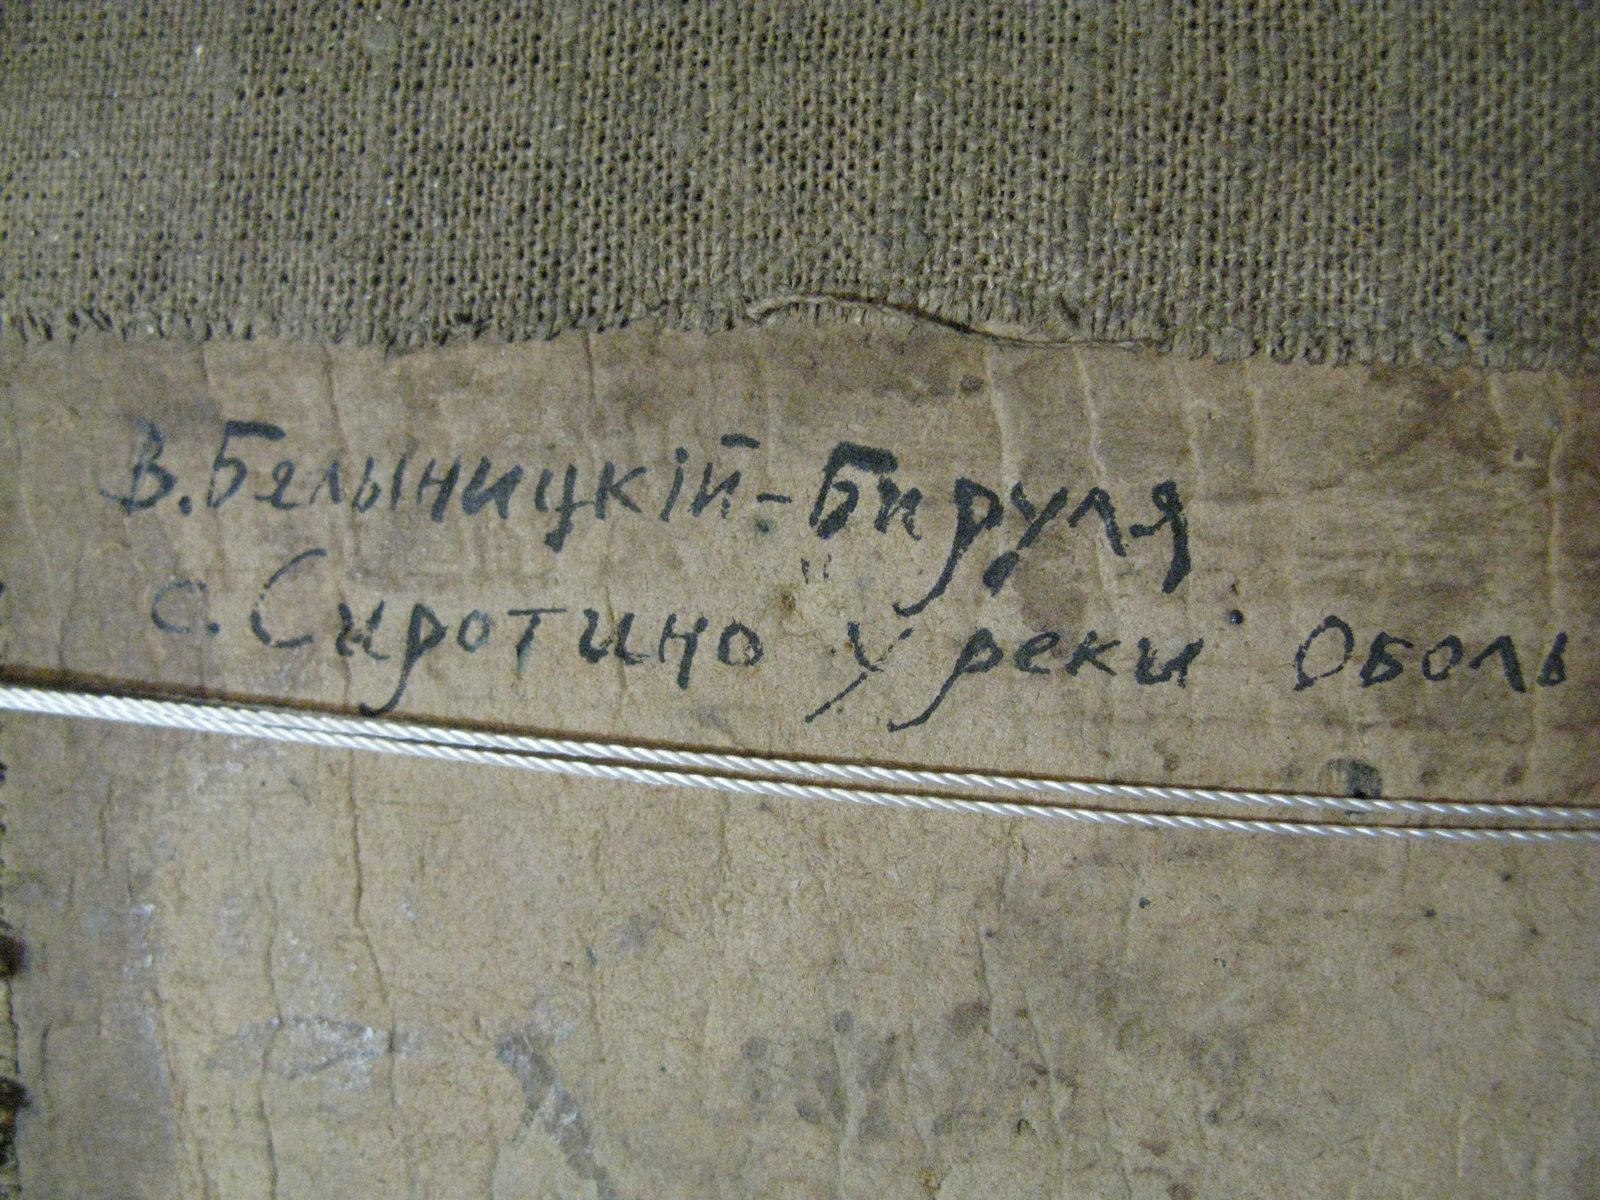 В. Бялыницкій-Бируля
с. Сиротино у реки Оболь